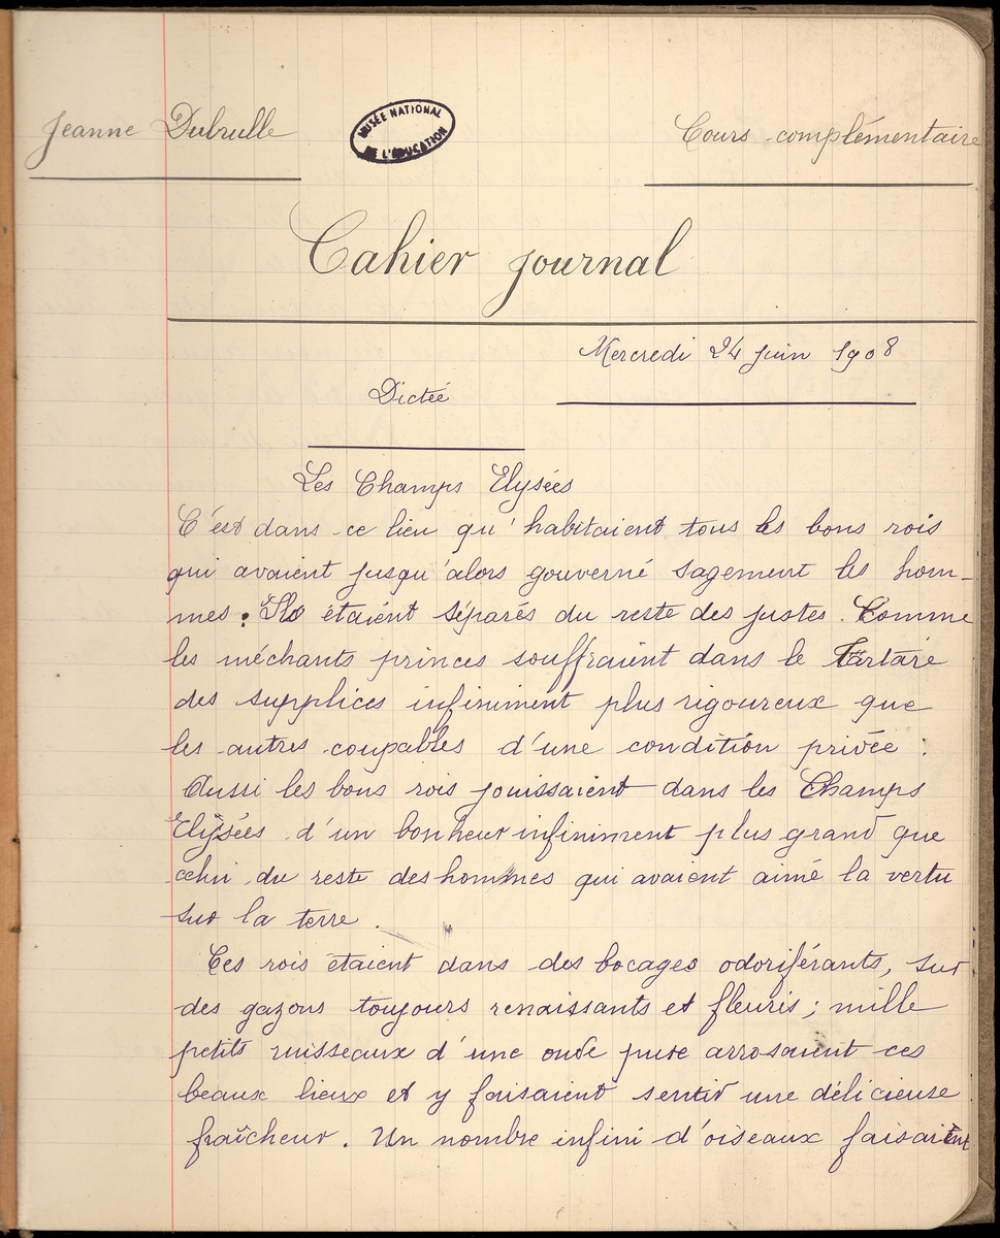 Jeanne Dubrulle
MUSÉE NATIONAL
DE L'ÉDUCATION
Cours complémentaire
Cahier journal
Mercredi 24 juin 1908
Dictée
Les Champs Elysées
C'est dans ce lieu qu'habitaient tous les bons rois
qui avaient jusqu'alors gouverné sagement les hom-
mes. Ils étaient séparés du reste des justes. Comme
les méchants princes souffraient dans le Tartare
des supplices infiniment plus rigoureux que
les autres coupables d'une condition privée :
Aussi les bons rois jouissaient dans les Champs
Elysées d'un bonheur infiniment plus grand que
celui du reste des hommes qui avaient aimé la vertu
sur la terre.
Ces rois étaient dans des bocages odoriférants, sur
des gazons toujours renaissants et fleuris ; mille
petits ruisseaux d'une onde pure arrosaient ces
beaux lieux et y faisaient sentir une délicieuse
fraîcheur. Un nombre infini d'oiseaux faisaient